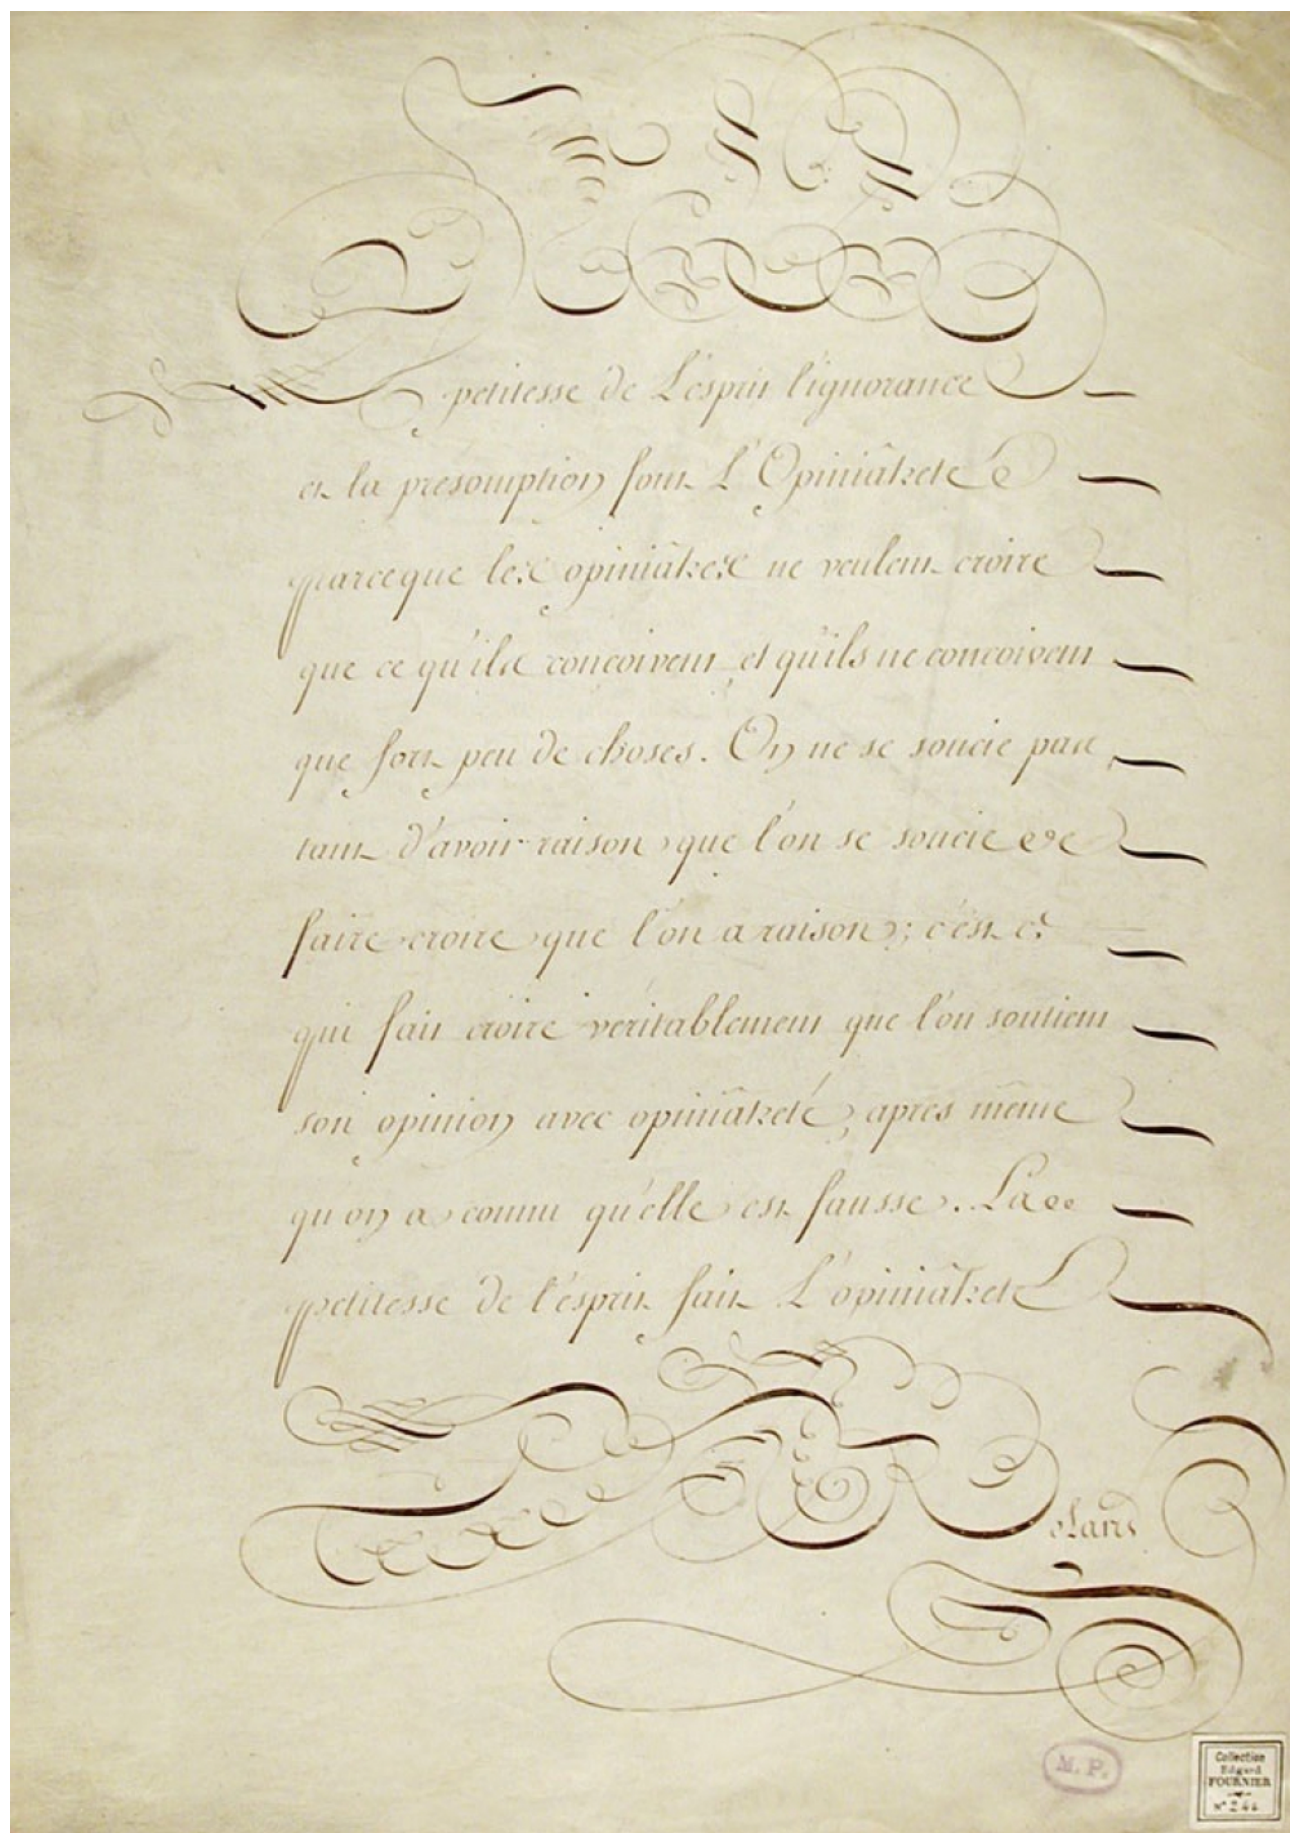 La
petitesse de L'esprit l'ignorance
et la présomption font L'Opiniâtreté
parceque les opiniâtres ne veulent croire
que ce qu'ils conçoivent et qu'ils ne conçoivent
que fort peu de choses. On ne se soucie pas
tant d'avoir raison que l'on se soucie de
faire croire que l'on a raison; c'est ce
qui fait croire véritablement que l'on soutient
son opinion avec opiniâtreté, après même
qu'on a connu qu'elle est fausse. La
petitesse de l'ésprit fait L'opiniâtreté
Rolland
M. P.
Collection
Edgard
FOURNIER